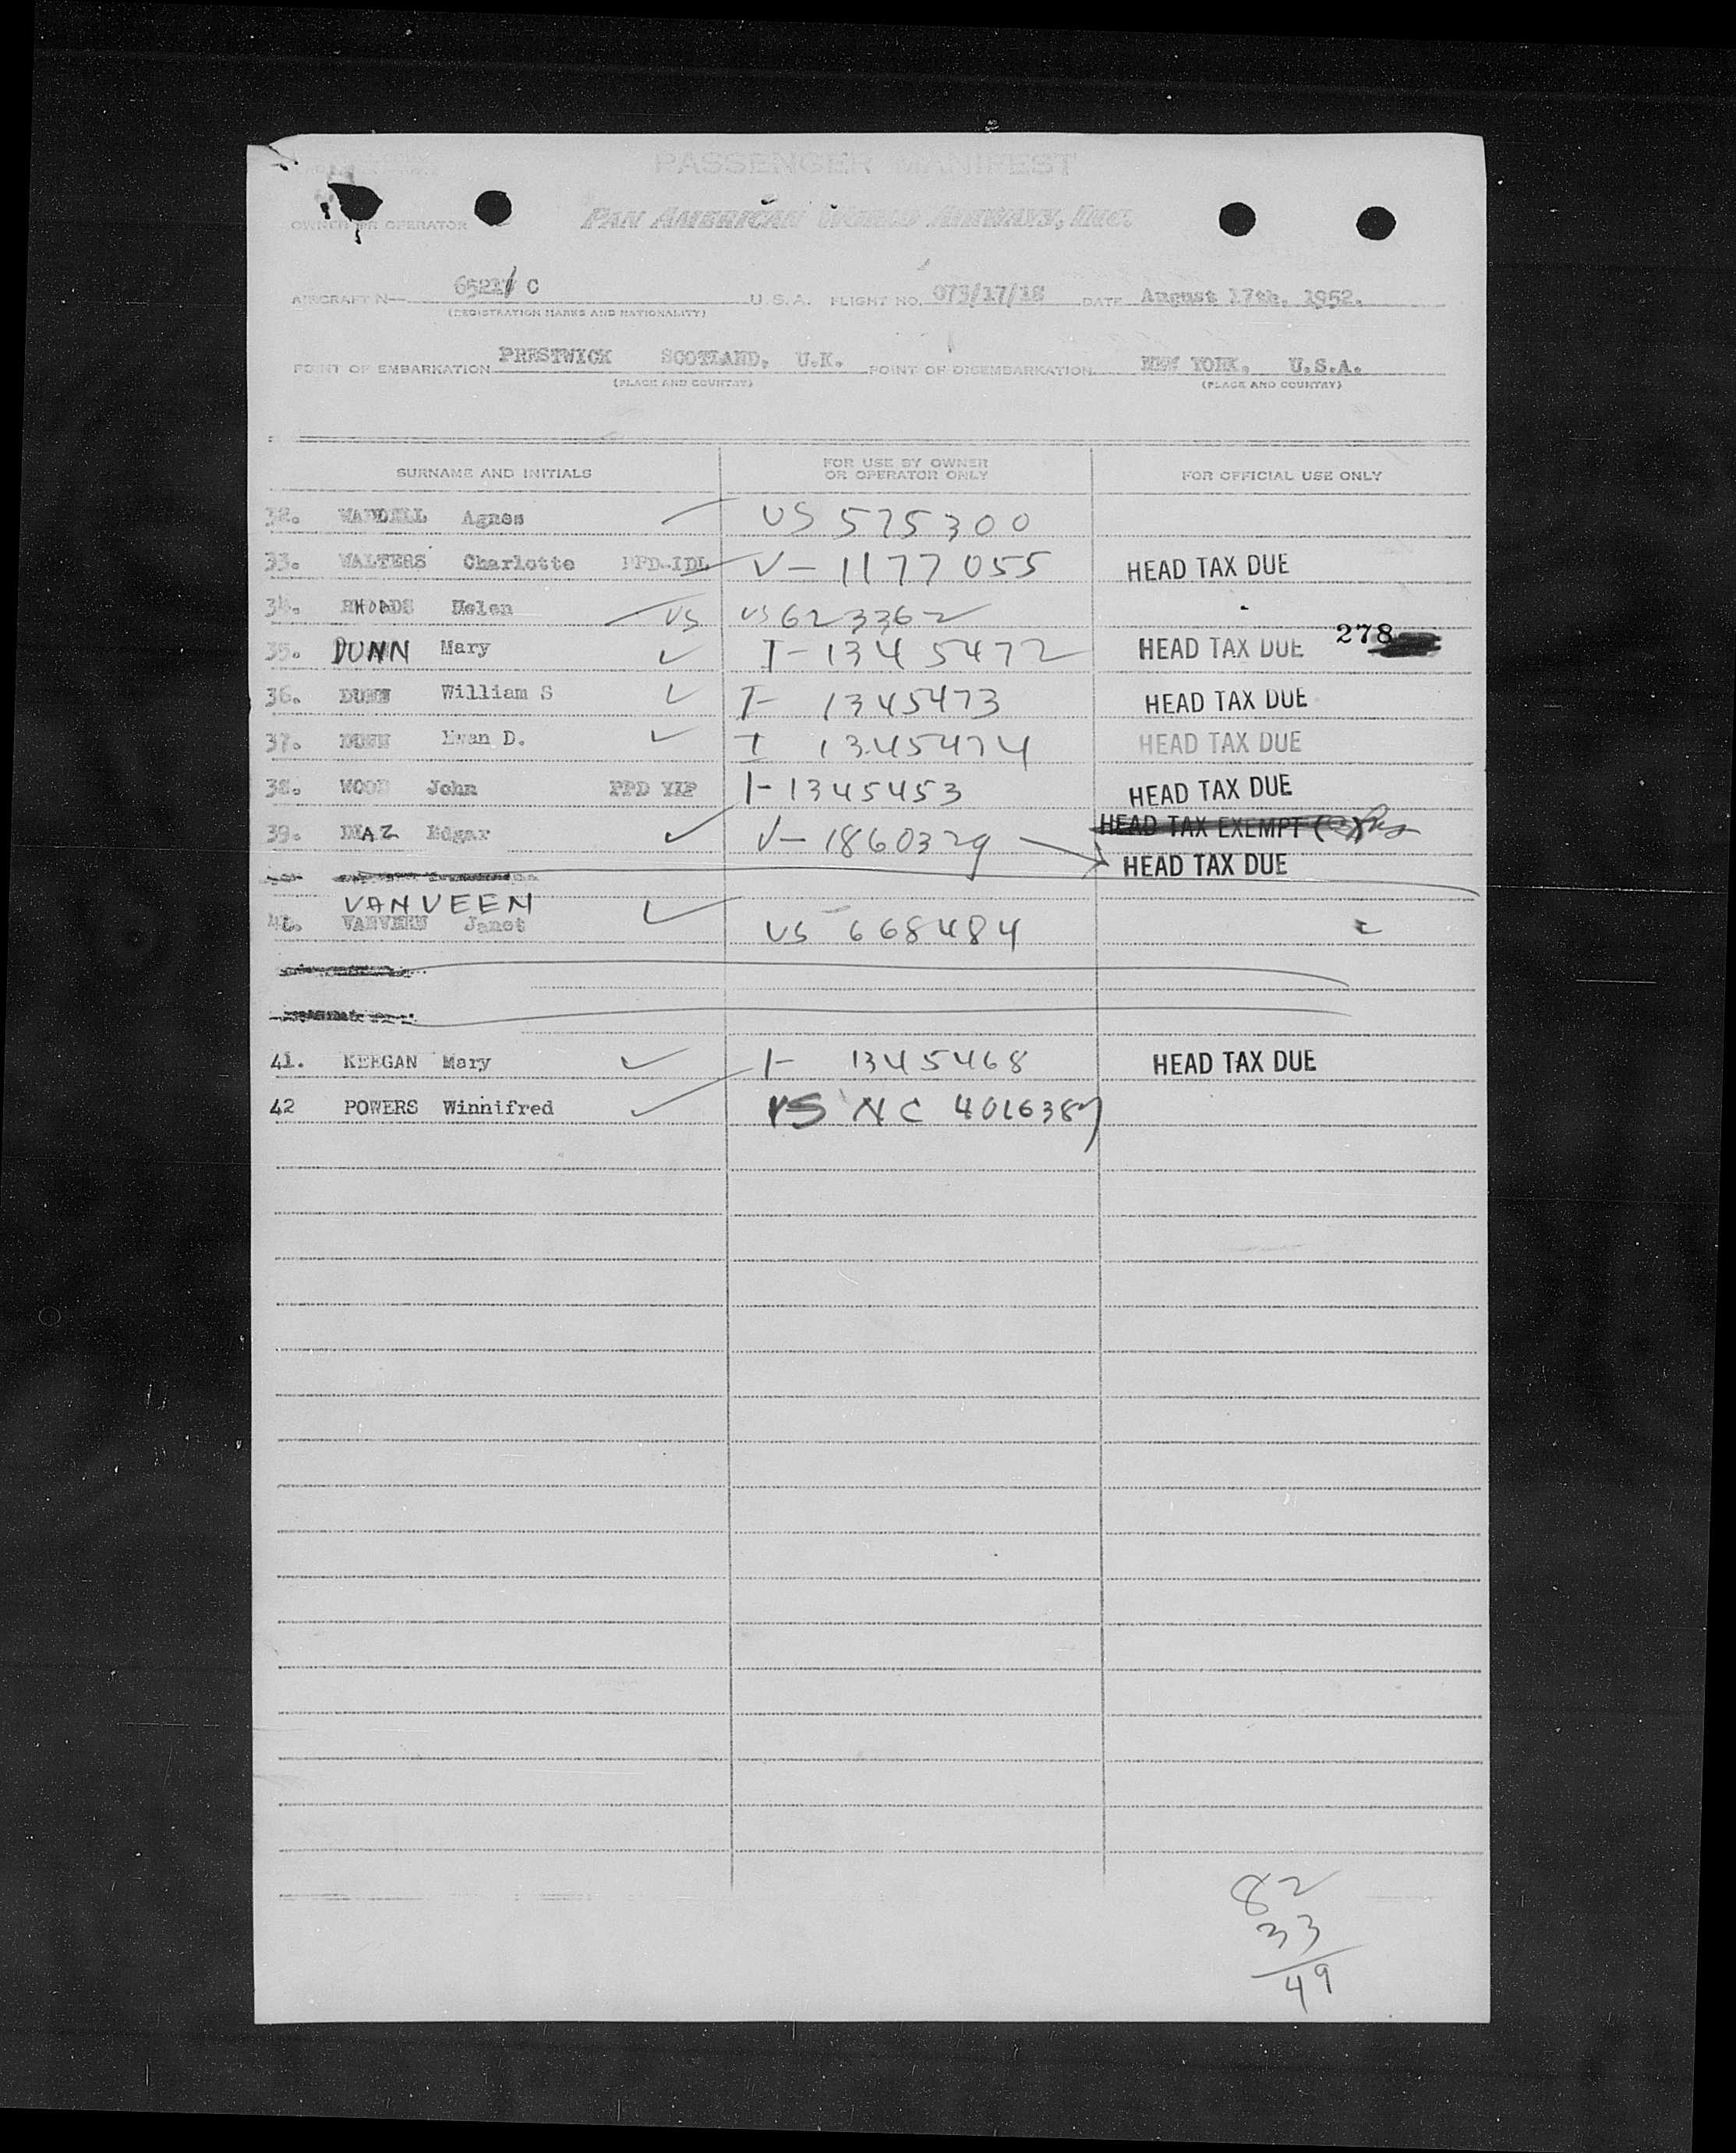 PASSENGER MANIFEST
OWNER OR OPERATOR PAN AMERICAN WORLD AIRWAYS, INC.
AIRCRAFT N— C U.S.A. FLIGHT NO. 073/17/18 DATE August 17th, 1952.
(REGISTRATION MARKS AND NATIONALITY)
POINT OF EMBARKATION PRESTWICK SCOTLAND, U.K. POINT OF DISEMBARKATION NEW YORK, U.S.A.
(PLACE AND COUNTRY) (PLACE AND COUNTRY)
SURNAME AND INITIALS FOR USE BY OWNER OR OPERATOR ONLY FOR OFFICIAL USE ONLY
32. WADDELL Agnes US 575300
33. WALTERS Charlotte PPD-IDL V- 1177055 HEAD TAX DUE
34. RHOADS Helen US US 623362
35. DUNN Mary I-1345472 HEAD TAX DUE 278
36. DUNN William S I- 1345473 HEAD TAX DUE
37. DUNN Ewan D. I 1345474 HEAD TAX DUE
38. WOOD John PPD I-1345453 HEAD TAX DUE
39. DIAZ Edgar V-1860329 HEAD TAX EXEMPT
HEAD TAX DUE
VANVEEN
40. VANVEEN Janet US 668484
41. KEEGAN Mary I- 1345468 HEAD TAX DUE
42 POWERS Winnifred US NC 4016387
82
33
49